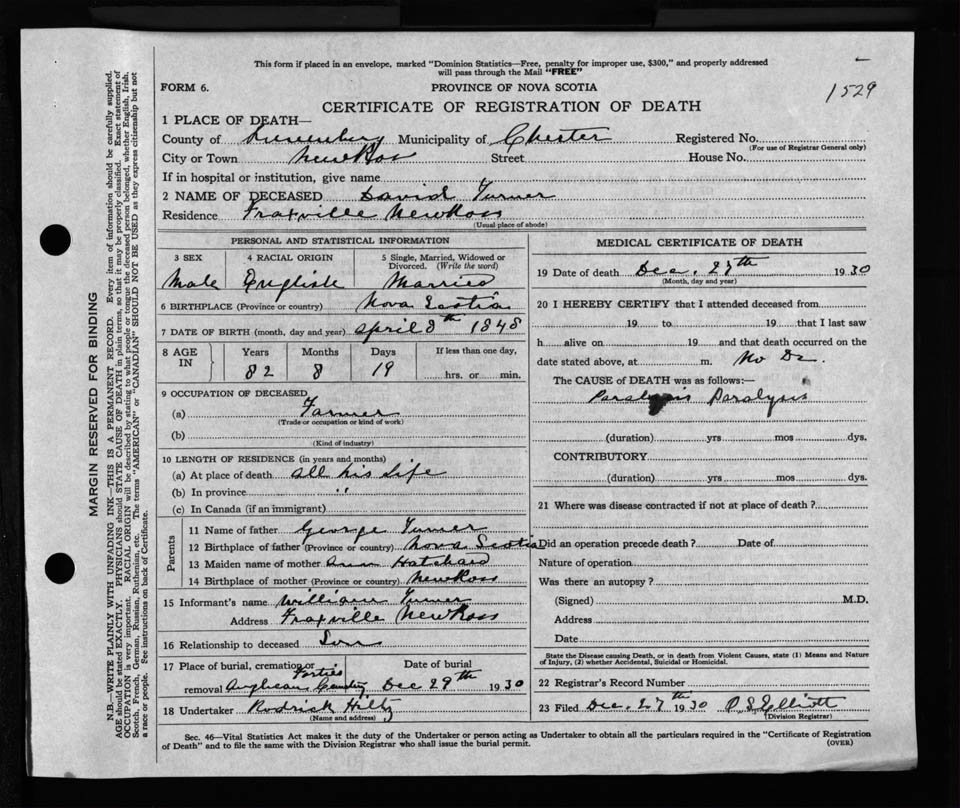 This form if placed in an envelope, marked "Dominion Statistics—Free, penalty for improper use, $300," and properly addressed
will pass through the Mail "FREE"
1529
FORM 6. PROVINCE OF NOVA SCOTIA
CERTIFICATE OF REGISTRATION OF DEATH
1 PLACE OF DEATH—
County of Lunenburg Municipality of Chester Registered No.
(For use of Registrar General only)
City or Town New Ross Street House No.
If in hospital or institution, give name
2 NAME OF DECEASED David Turner
Residence Fraxville New Ross
(Usual place of abode)
PERSONAL AND STATISTICAL INFORMATION
3 SEX 4 RACIAL ORIGIN 5 Single, Married, Widowed or
Divorced. (Write the word)
Male English Married
6 BIRTHPLACE (Province or country) Nova Scotia
7 DATE OF BIRTH (month, day and year) April 8th 1848
8 AGE IN Years Months Days If less than one day,
82 8 19 hrs. or min.
9 OCCUPATION OF DECEASED
(a) Farmer
(Trade or occupation or kind of work)
(b)
(Kind of industry)
10 LENGTH OF RESIDENCE (in years and months)
(a) At place of death all his life
(b) In province "
(c) In Canada (if an immigrant)
Parents
11 Name of father George Turner
12 Birthplace of father (Province or country) Nova Scotia
13 Maiden name of mother Ann Hatchard
14 Birthplace of mother (Province or country) New Ross
15 Informant's name William Turner
Address Fraxville New Ross
16 Relationship to deceased Son
17 Place of burial, cremation or Date of burial
removal Anglican Cemetry Dec 29th 1930
18 Undertaker Rodrick Hiltz
(Name and address)
MEDICAL CERTIFICATE OF DEATH
19 Date of death Dec. 27th 1930
(Month, day and year)
20 I HEREBY CERTIFY that I attended deceased from
19 to 19 that I last saw
h alive on 19 and that death occurred on the
date stated above, at m. No Dr.
The CAUSE of DEATH was as follows:—
Paralysis Paralysis
(duration) yrs mos dys.
CONTRIBUTORY
(duration) yrs mos dys.
21 Where was disease contracted if not at place of death?
Did an operation precede death? Date of
Nature of operation
Was there an autopsy?
(Signed) M.D.
Address
Date
State the Disease causing Death, or in death from Violent Causes, state (1) Means and Nature
of Injury, (2) whether Accidental, Suicidal or Homicidal.
22 Registrar's Record Number
23 Filed Dec. 27th 1930 P S Elliott
(Division Registrar)
Sec. 46—Vital Statistics Act makes it the duty of the Undertaker or person acting as Undertaker to obtain all the particulars required in the "Certificate of Registration
of Death" and to file the same with the Division Registrar who shall issue the burial permit. (OVER)
MARGIN RESERVED FOR BINDING
N.B.—WRITE PLAINLY WITH UNFADING INK—THIS IS A PERMANENT RECORD. Every item of information should be carefully supplied.
AGE should be stated EXACTLY. PHYSICIANS should STATE CAUSE OF DEATH in plain terms, so that it may be properly classified. Exact statement of
OCCUPATION is very important. RACIAL ORIGIN will be described by stating to what people or tongue the deceased person belonged, whether English, Irish,
Scotch, French, German, Russian, Ruthenian, etc. The terms "AMERICAN" or "CANADIAN" SHOULD NOT BE USED as they express citizenship but not
a race or people. See instructions on back of Certificate.